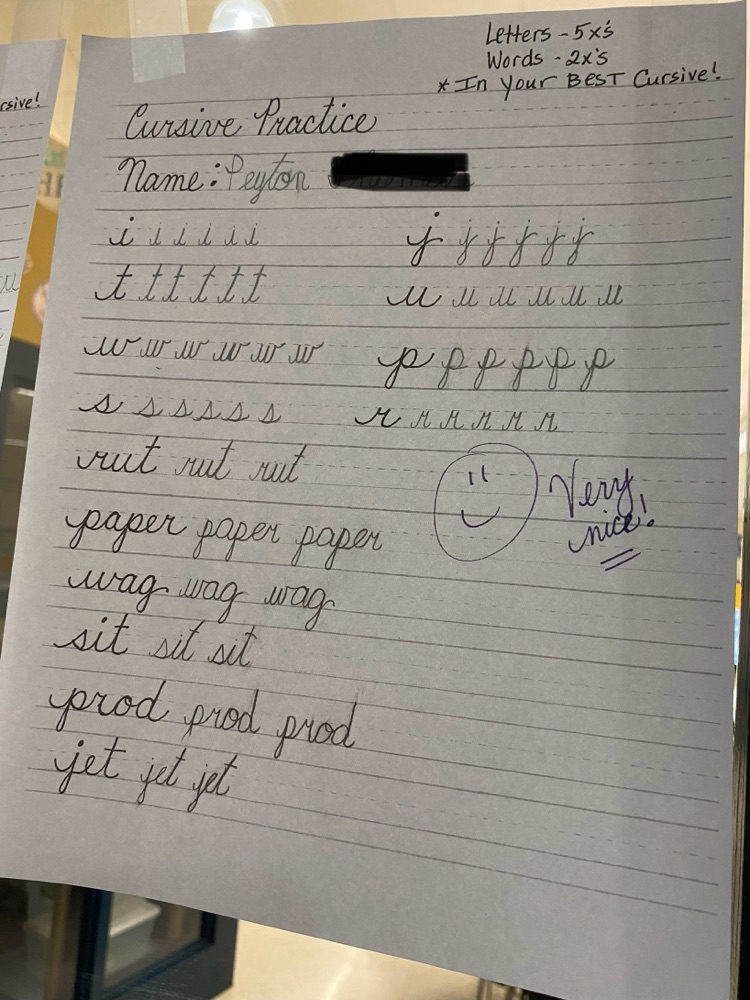 Letters - 5x's
Words - 2x's
* In Your BEST Cursive!
rsive!
Cursive Practice
Name: Peyton
i i i i i i j j j j j j
t t t t t t u u u u u u
w w w w w w p p p p p p
s s s s s s r r r r r r
rut rut rut
paper paper paper
Very
nice!
wag wag wag
sit sit sit
prod prod prod
jet jet jet